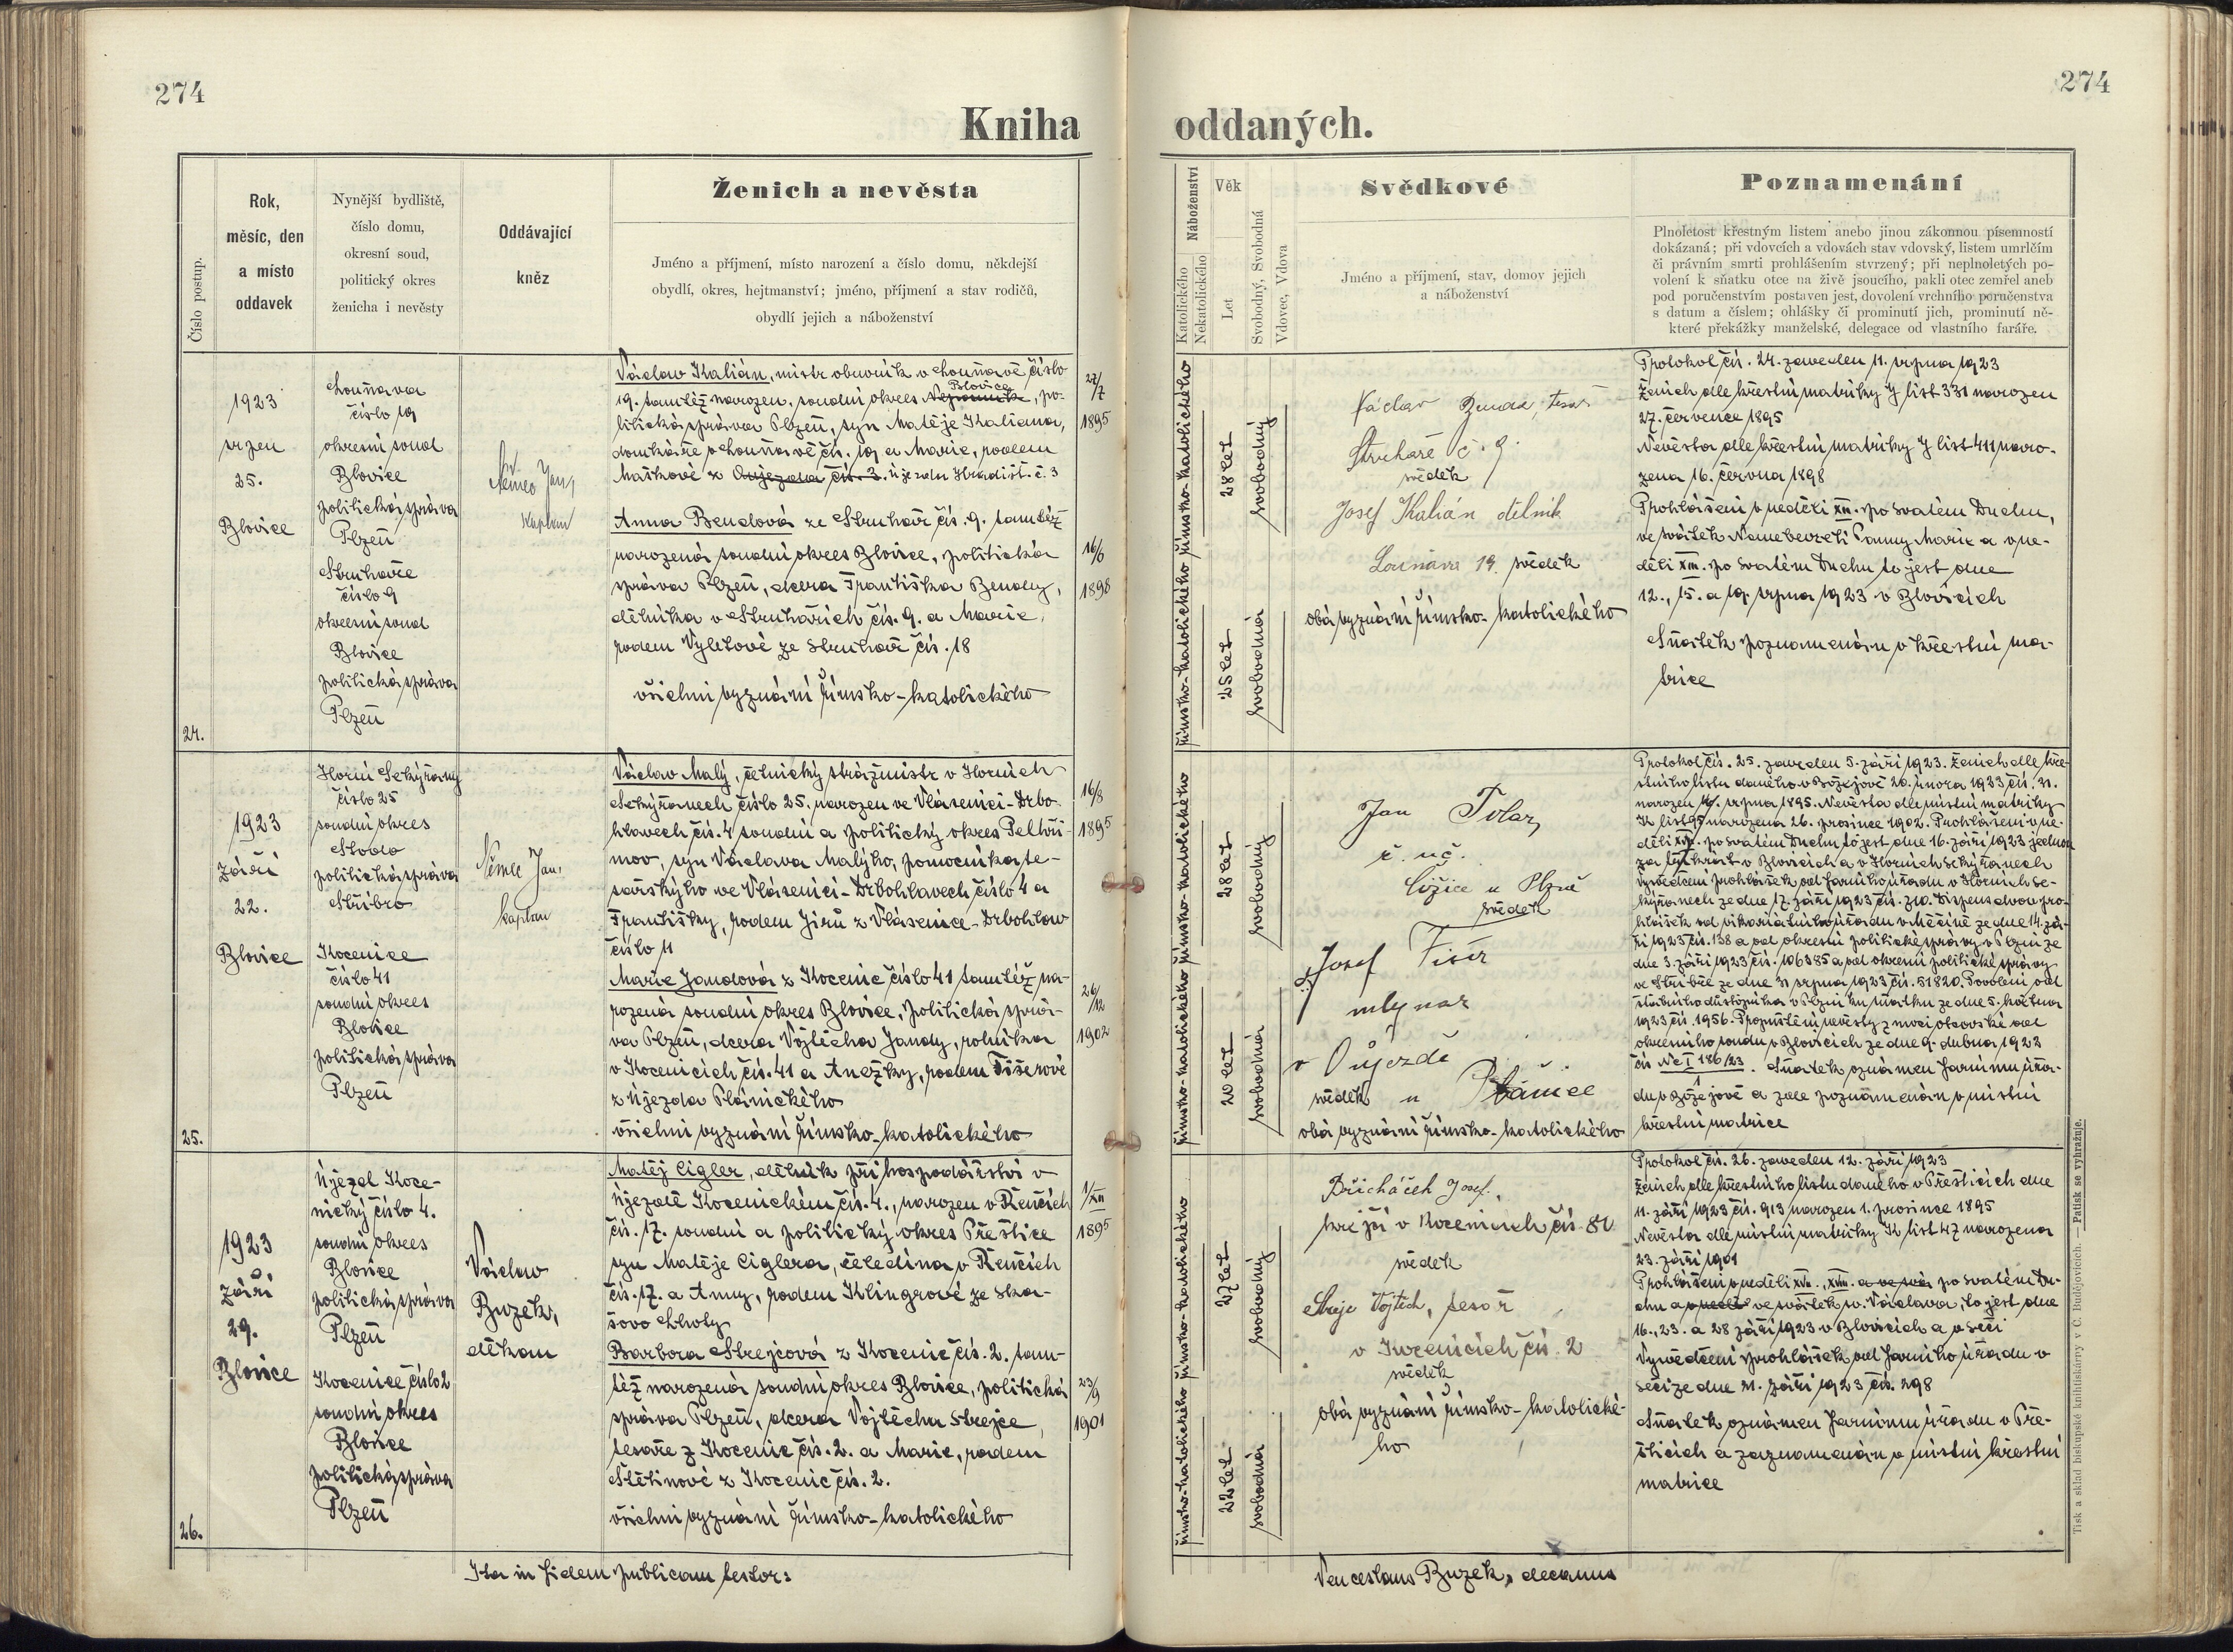 274
274
Kniha
oddaných.
Číslo postup.
Rok,
měsíc, den
a místo
oddavek
Nynější bydliště,
číslo domu,
okresní soud,
politický okres
ženicha i nevěsty
Oddávající
kněz
Ženich a nevěsta
Jméno a příjmení, místo narození a číslo domu, někdejší
obydlí, okres, hejtmanství; jméno, příjmení a stav rodičů,
obydlí jejich a náboženství
24.
1923
srpen
25.
Blovice
Louňava
číslo 19
okresní soud
Blovice
politická správa
Plzeň
Struhaře
číslo 9
okresní soud
Blovice
politická správa
Plzeň
Němec Jan,
kaplan
Václav Kalián, mistr obuvník v Louňavě číslo
Blovice
19. tamtéž narozen, soudní okres Nepomuk, po-
litická správa Plzeň, syn Matěje Kaliana,
domkáře v Louňavě čís. 19 a Marie, rodem
Maškové z Oujezda čís. 3. Újezdu Hradišť. č. 3
Anna Bendová ze Struhař čís. 9. tamtéž
narozená soudní okres Blovice, politická
správa Plzeň, dcera Františka Bendy,
dělníka v Struhařích čís. 9. a Marie,
rodem Vyletové ze Struhař čís. 18
všichni vyznání římsko-katolického
27/7
1895
16/6
1898
25.
1923
září
22.
Blovice
Horní Sekyřany
číslo 25
soudní okres
Stodo
politická správa
Stříbro
Kocenice
číslo 41
soudní okres
Blovice
politická správa
Plzeň
Němec Jan,
kaplan
Václav Malý, četnický strážmistr v Horních
Sekyřanech číslo 25. narozen ve Vlásenici-Drbo-
hlavech čís. 4 soudní a politický okres Pelhři-
mov, syn Václava Malýho, pomocníka te-
sařskýho ve Vlásenici-Drbohlavech číslo 4 a
Františky, rodem Jirů z Vlásenice-Drbohlav
číslo 11
Marie Jandová z Kocenic číslo 41 tamtéž na-
rozená soudní okres Blovice, politická sprá-
va Plzeň, dcera Vojtěcha Jandy, rolníka
v Kocenicích čís. 41 a Anežky, rodem Fišerové
z Újezda Plánického
všichni vyznání římsko-katolického
16/8
1895
26/12
1902
26.
1923
září
29.
Blovice
Újezd Koce-
nický číslo 4.
soudní okres
Blovice
politická správa
Plzeň
Kocenice číslo 2
soudní okres
Blovice
politická správa
Plzeň
Václav
Buzek,
děkan
Matěj Cigler, dělník při hospodářství v
Újezdě Kocenickém čís. 4., narozen v Řenčích
čís. 17. soudní a politický okres Přeštice
syn Matěje Ciglera, čeledína v Řenčích
čís. 17. a Anny, rodem Klingrové ze Ska-
šovo Lhoty
Barbora Strejcová z Kocenic čís. 2. tam-
též narozená soudní okres Blovice, politická
správa Plzeň, dcera Vojtěcha Strejce,
tesaře z Kocenic čís. 2. a Marie, rodem
Štětinové z Kocenic čís. 2.
všichni vyznání římsko-katolického
1/XII
1895
23/9
1901
Ita in fidem publicam testor:
Náboženství
Katolického
Nekatolického
Věk
Let
Svobodný, Svobodná
Vdovec, Vdova
Svědkové
Jméno a příjmení, stav, domov jejich
a náboženství
Poznamenání
Plnoletost křestným listem anebo jinou zákonnou písemností
dokázaná; při vdovcích a vdovách stav vdovský, listem umrlčím
či právním smrti prohlášením stvrzený; při neplnoletých po-
volení k sňatku otce na živě jsoucího, pakli otec zemřel aneb
pod poručenstvím postaven jest, dovolení vrchního poručenstva
s datum a číslem; ohlášky či prominutí jich, prominutí ně-
které překážky manželské, delegace od vlastního faráře.
římsko-katolického
28 let
svobodný
římsko-katolického
25 let
svobodná
Václav Benda, tesař
Struhaře č. 9.
svědek
Josef Kalián dělník
Louňava 19. svědek
obá vyznání římsko-katolického
Protokol čís. 24. zaveden 11. srpna 1923
Ženich dle křestní matriky J list 331 narozen
27. července 1895
Nevěsta dle křestní matriky J list 411 naro-
zena 16. června 1898
Prohlášení v neděli XII. po svatém Duchu,
ve svátek Nanebevzetí Panny Marie a v ne-
děli XIII. po svatém Duchu to jest dne
12., 15. a 19. srpna 1923 v Blovicích
Sňatek poznamenán v křestní ma-
trice
římsko-katolického
28 let
svobodný
římsko-katolického
20 let
svobodná
Jan Tolar,
svědek
Josef Fišer
mlynář
v Oujezdě
svědek u Plánice
obá vyznání římsko-katolického
Protokol čís. 25. zaveden 5. září 1923. Ženich dle kře-
stního listu daného v Božejově 26. února 1923 čís. 31.
narozen 16. srpna 1895. Nevěsta dle místní matriky
K list 95 narozena 26. prosince 1902. Prohlášeni v ne-
děli XVII. po svatém Duchu to jest dne 16. září 1923 jednou
za třikrát v Blovicích a v Horních Sekyřanech
Vysvědčení prohlášek od farního úřadu v Horních Se-
kyřanech ze dne 17. září 1923 čís. 710. Dispens dvou pro-
hlášek od vikariátního úřadu ze dne 14. zá-
ří 1923 čís. 138 a od okresní politické správy v Plzni ze
dne 3. září 1923 čís. 106385 a od okresní politické správy
ve Stříbře ze dne 31 srpna 1923 čís. 51820. Povolení od
v Plzni ku sňatku ze dne 5. května
1923 čís. 1956. Propuštění nevěsty z moci otcovské od
okresního soudu v Blovicích ze dne 9. dubna 1923
čís Nc I 186/23 / 1. Sňatek oznámen farnímu úřa-
du v Božejově a zde poznamenán v místní
křestní matrice
římsko-katolického
27 let
svobodný
římsko-katolického
22 let
svobodná
Břicháček Josef,
krejčí v Kocenicích čís. 80
svědek
Strejc Vojtěch, tesař
v Kocenicích čís. 2
svědek
obá vyznání římsko-katolické-
ho
Protokol čís. 26. zaveden 12. září 1923
Ženich dle křestního listu daného v Přešticích dne
11. září 1923 čís. 913 narozen 1. prosince 1895
Nevěsta dle místní matriky K list 47 narozena
23. září 1901
Prohlášení v neděli XVII., XVIII. a ve svá po svatém Du-
chu ve svátek sv. Václava, to jest dne
16., 23. a 28 září 1923 v Blovicích a v Seči
Vysvědčení prohlášek od farního úřadu v
Seči ze dne 31. září 1923 čís. 298
Sňatek oznámen farnímu úřadu v Pře-
šticích a zaznamenán v místní křestní
matrice
Venceslaus Buzek, decanus
Tisk a sklad biskupské knihtiskárny v Č. Budějovicích. — Patisk se vyhražuje.